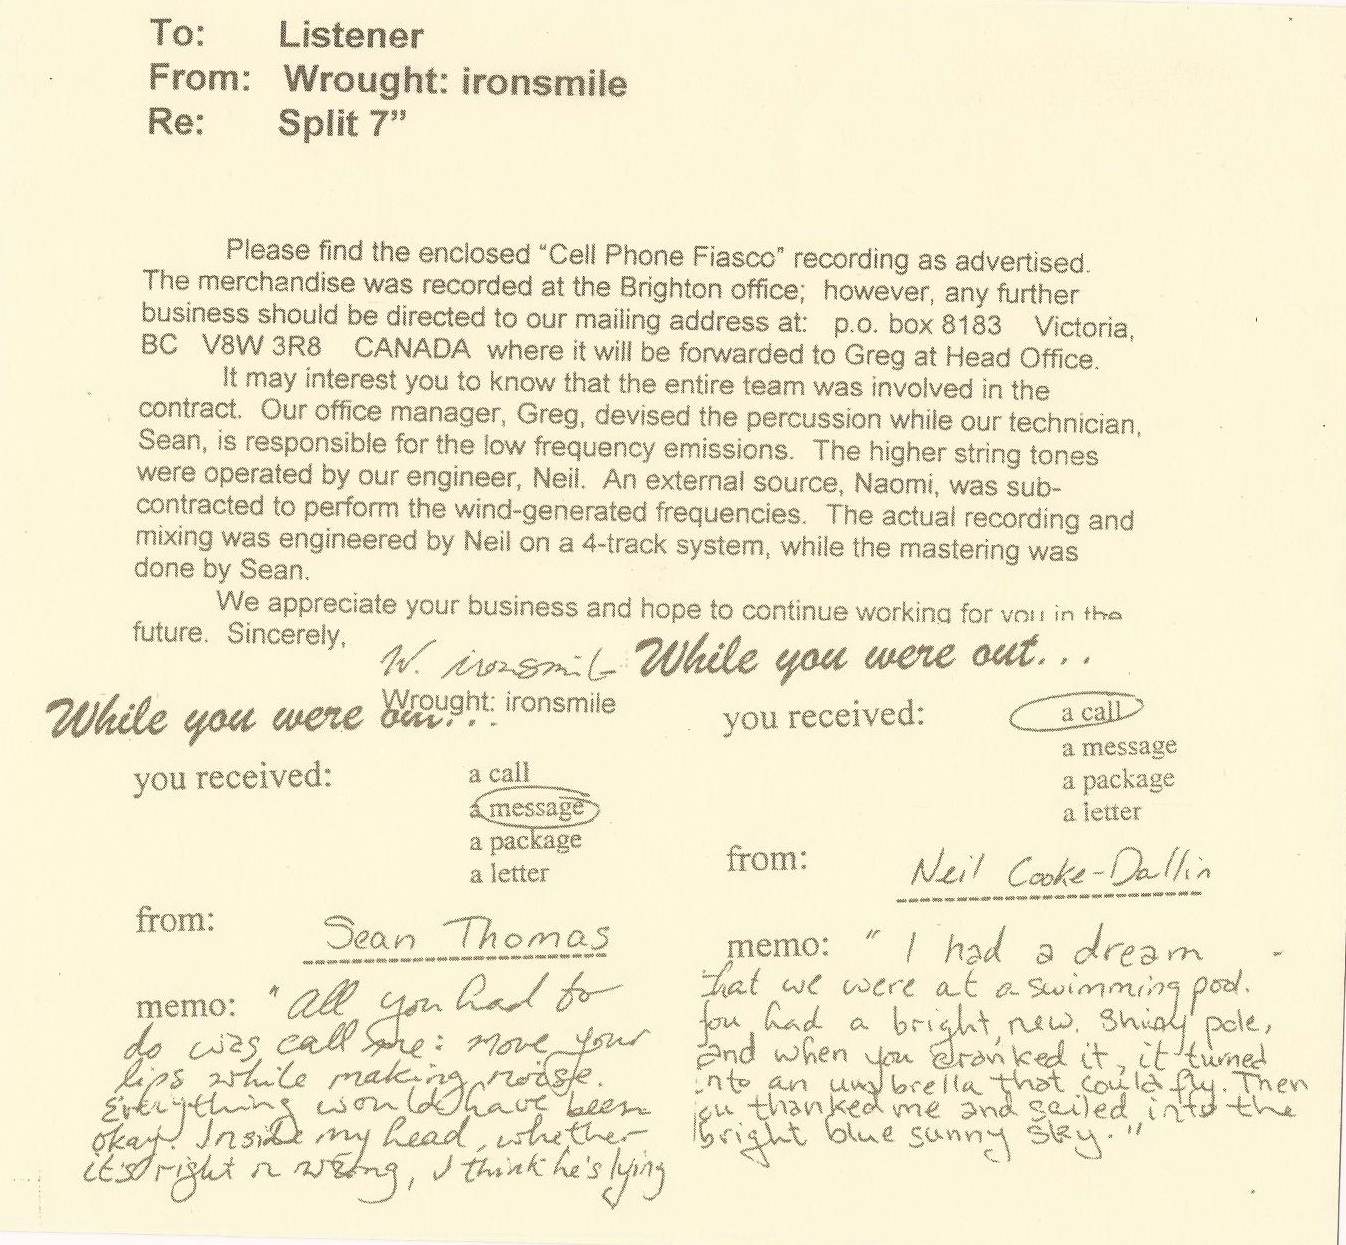 To: Listener
From: Wrought: ironsmile
Re: Split 7”
Please find the enclosed “Cell Phone Fiasco” recording as advertised.
The merchandise was recorded at the Brighton office; however, any further
business should be directed to our mailing address at: p.o. box 8183 Victoria,
BC V8W 3R8 CANADA where it will be forwarded to Greg at Head Office.
It may interest you to know that the entire team was involved in the
contract. Our office manager, Greg, devised the percussion while our technician,
Sean, is responsible for the low frequency emissions. The higher string tones
were operated by our engineer, Neil. An external source, Naomi, was sub-
contracted to perform the wind-generated frequencies. The actual recording and
mixing was engineered by Neil on a 4-track system, while the mastering was
done by Sean.
We appreciate your business and hope to continue working for you in the
future. Sincerely,
W. ironsmile
Wrought: ironsmile
While you were out...
you received:
a call
a message
a package
a letter
from: Sean Thomas
memo: "All you had to
do was call me: move your
lips while making noise.
Everything would have been
okay. Inside my head, whether
it's right or wrong, I think he's lying
While you were out...
you received:
a call
a message
a package
a letter
from: Neil Cooke-Dallin
memo: "I had a dream
that we were at a swimming pool.
You had a bright, new, shiny pole,
and when you cranked it, it turned
into an umbrella that could fly. Then
you thanked me and sailed into the
bright blue sunny sky."